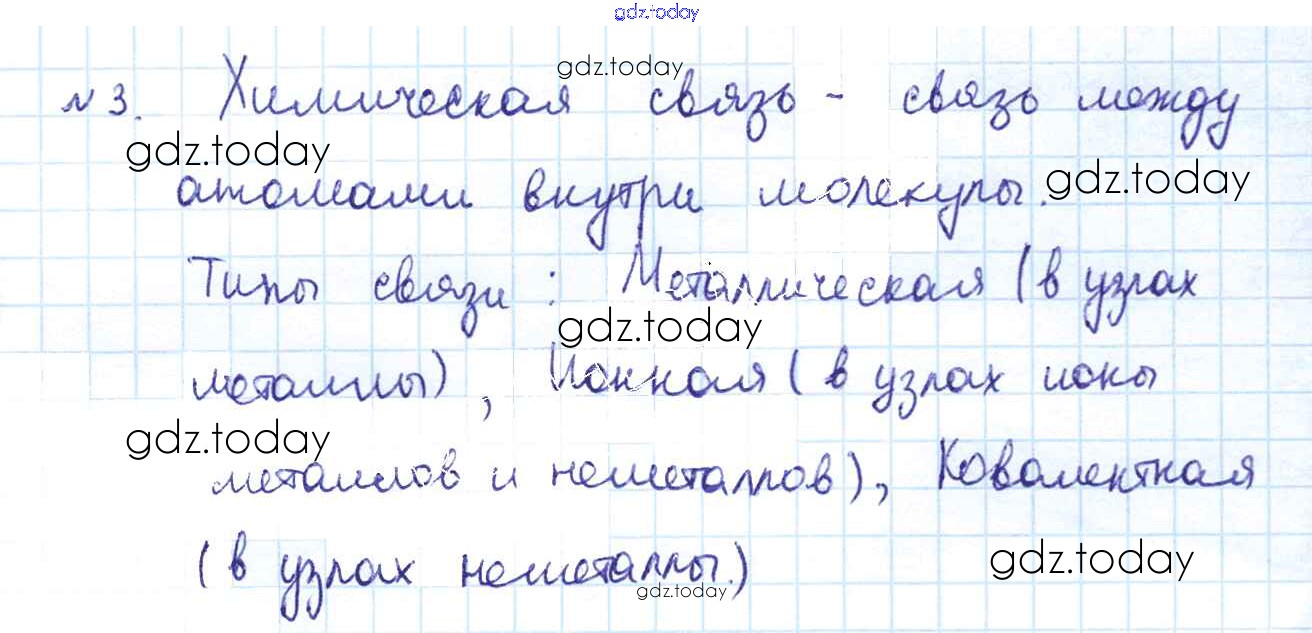 gdz.today
gdz.today
№3. Химическая связь - связь между
gdz.today
атомами внутри молекулы.
gdz.today
Типы связи: Металлическая (в узлах
gdz.today
металлы), Ионная (в узлах ионы
gdz.today
металлов и неметаллов), Ковалентная
gdz.today
(в узлах неметаллы.)
gdz.today